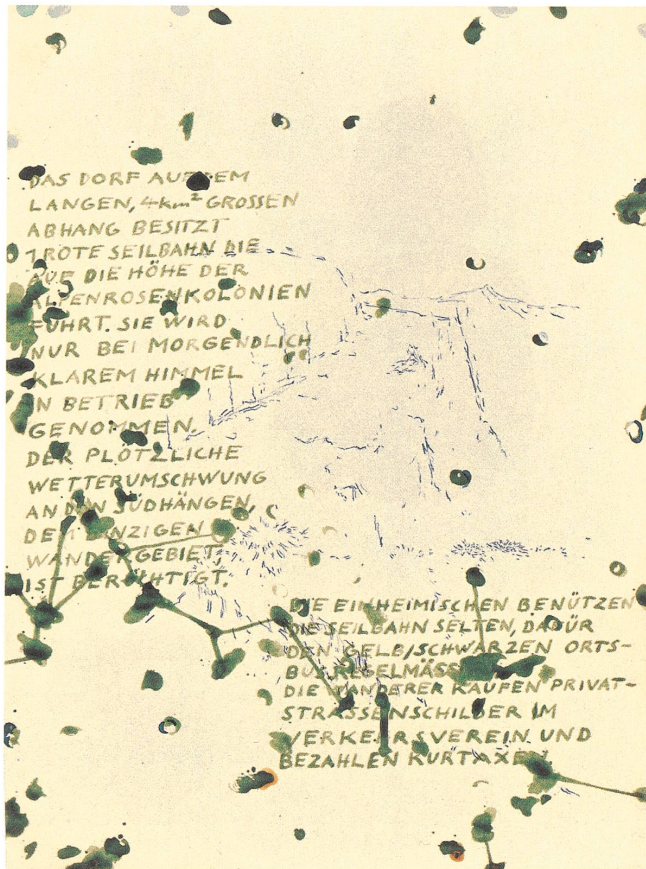 DAS DORF AUF DEM
LANGEN, 4km² GROSSEN
ABHANG BESITZT
1 ROTE SEILBAHN DIE
AUF DIE HÖHE DER
ALPENROSENKOLONIEN
FÜHRT. SIE WIRD
NUR BEI MORGENDLICH
KLAREM HIMMEL
IN BETRIEB
GENOMMEN.
DER PLÖTZLICHE
WETTERUMSCHWUNG
AN DEN SÜDHÄNGEN,
DEM EINZIGEN
WANDERGEBIET,
IST BERÜCHTIGT.
DIE EINHEIMISCHEN BENÜTZEN
DIE SEILBAHN SELTEN, DAFÜR
DEN GELB/SCHWARZEN ORTS-
BUS REGELMÄSSIG.
DIE WANDERER KAUFEN PRIVAT-
STRASSENSCHILDER IM
VERKEHRSVEREIN UND
BEZAHLEN KURTAXEN.